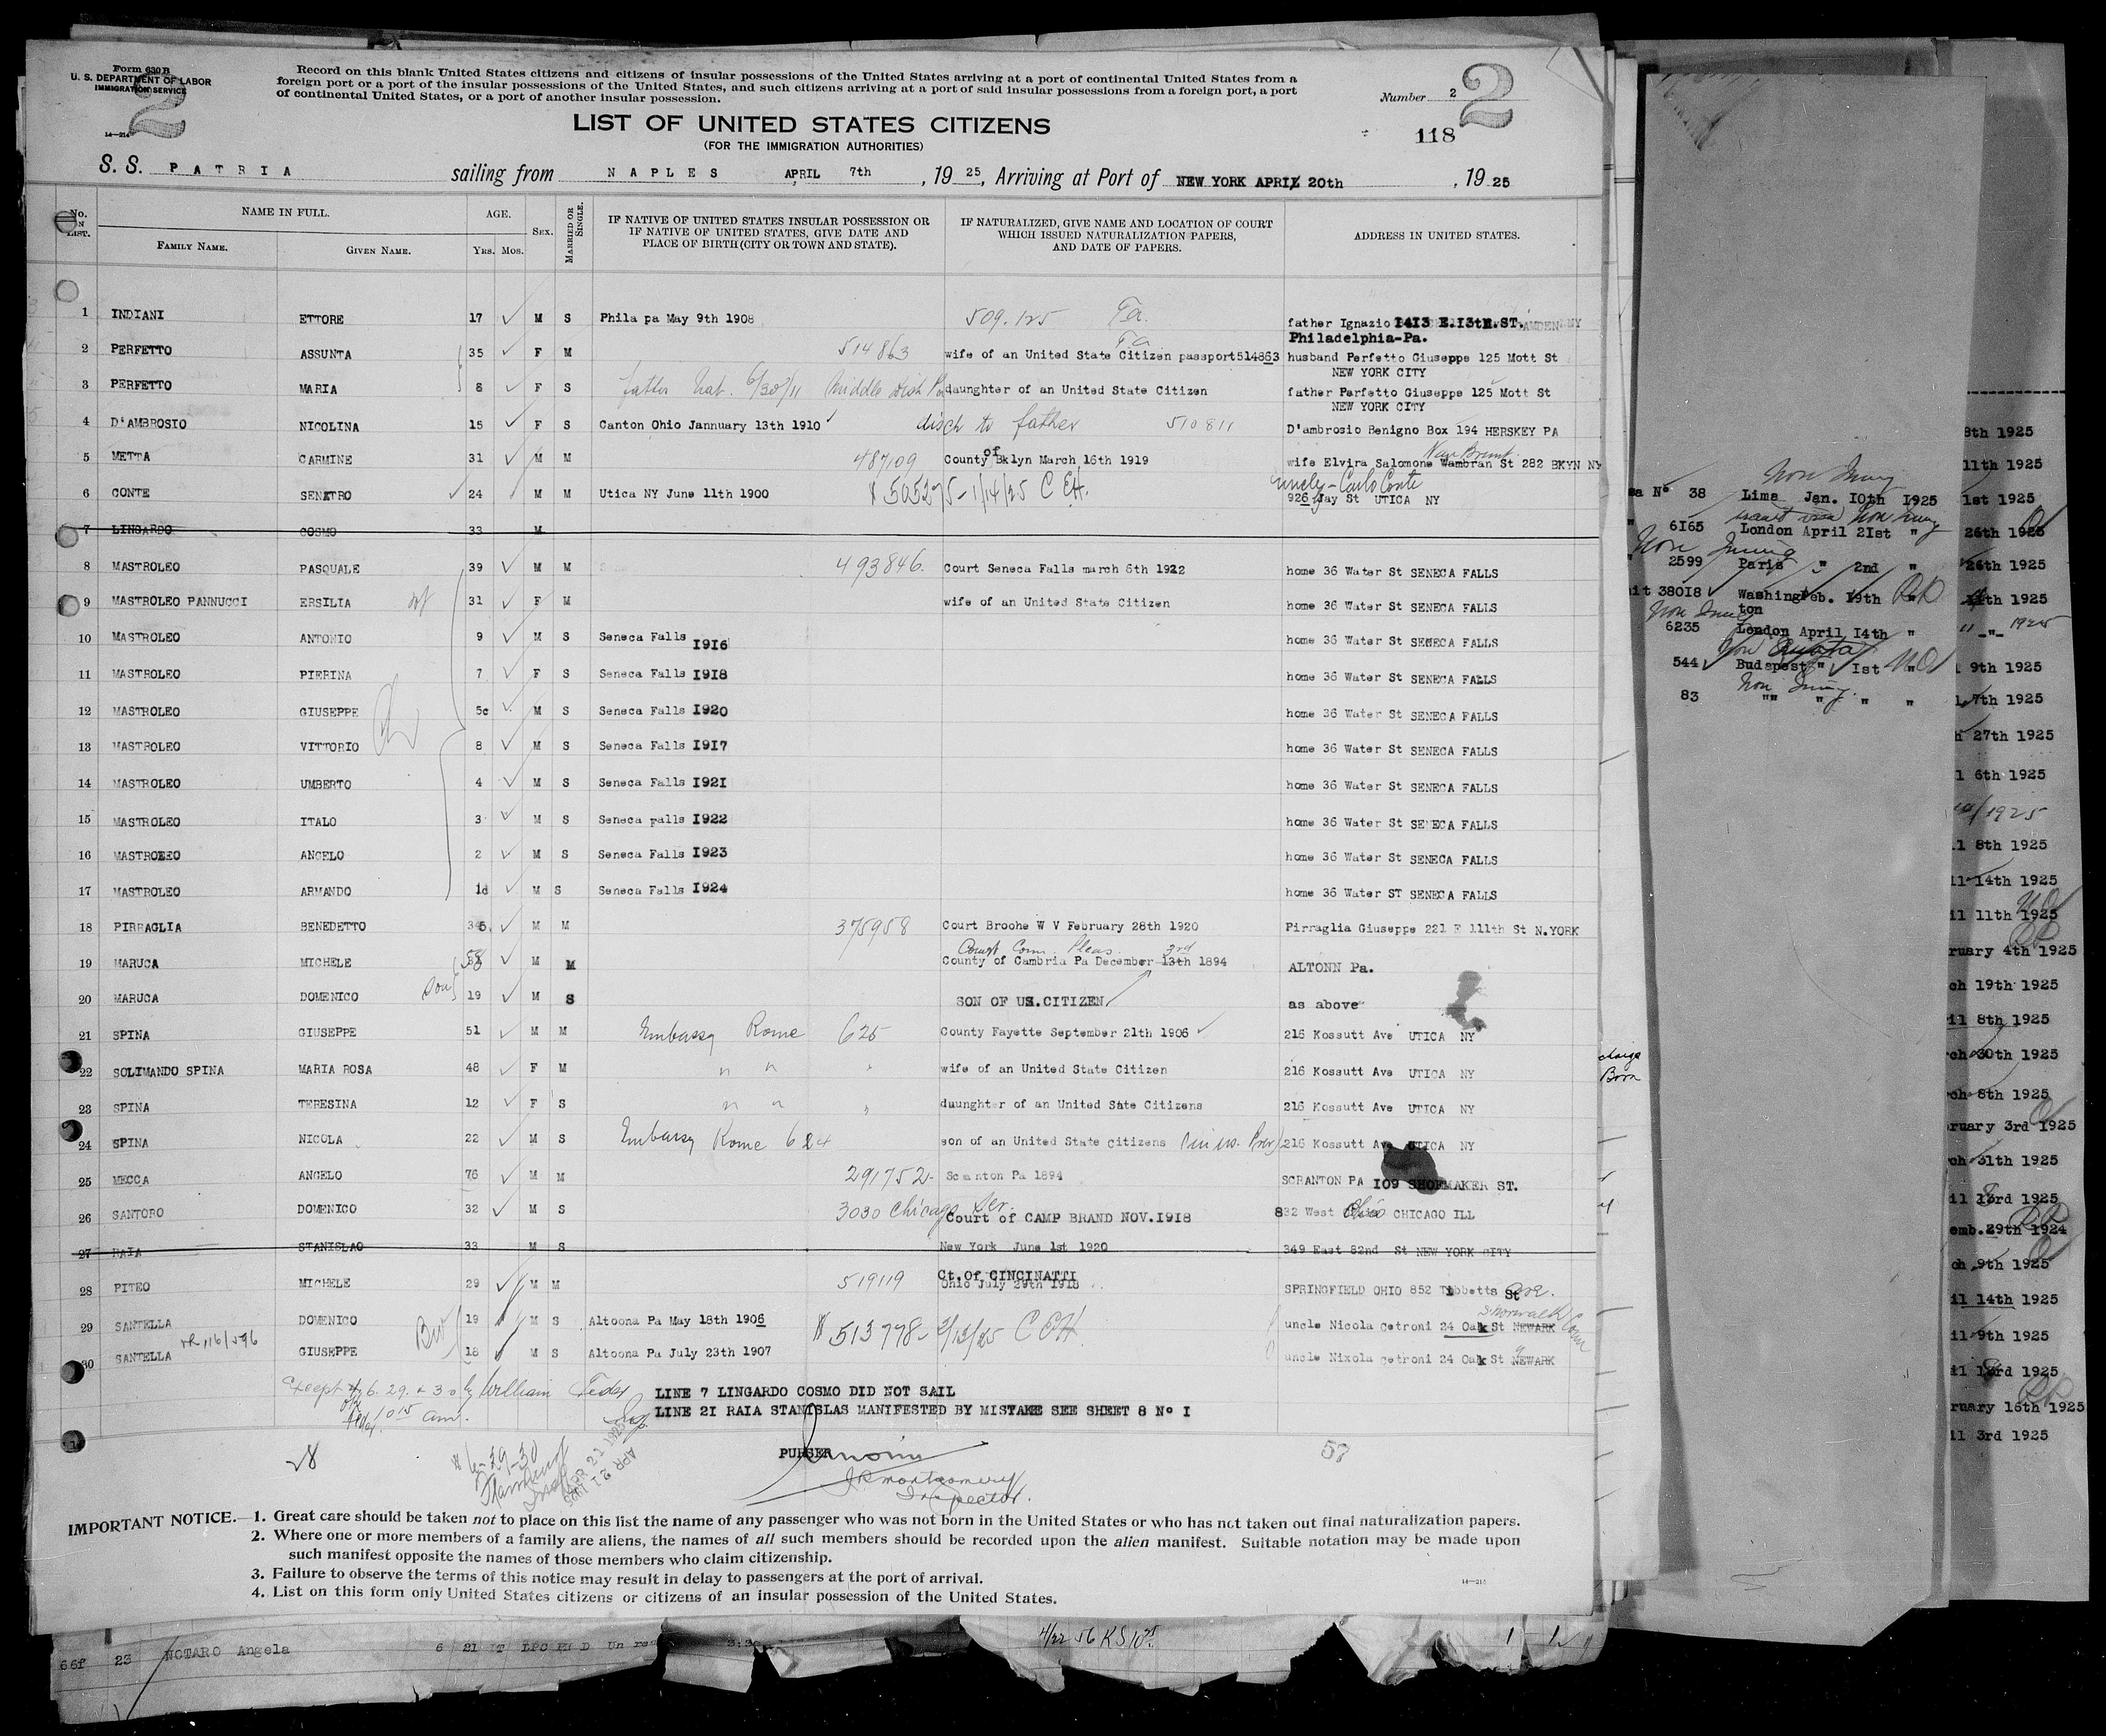 Form 630 B
U. S. DEPARTMENT OF LABOR
IMMIGRATION SERVICE
14—214
2
Record on this blank United States citizens and citizens of insular possessions of the United States arriving at a port of continental United States from a
foreign port or a port of the insular possessions of the United States, and such citizens arriving at a port of said insular possessions from a foreign port, a port
of continental United States, or a port of another insular possession.
Number 2
2
LIST OF UNITED STATES CITIZENS
118
(FOR THE IMMIGRATION AUTHORITIES)
S. S. PATRIA sailing from NAPLES APRIL 7th, 1925, Arriving at Port of NEW YORK APRIL 20th, 1925
No. IN LIST. NAME IN FULL. AGE. SEX. MARRIED OR SINGLE. IF NATIVE OF UNITED STATES INSULAR POSSESSION OR IF NATIVE OF UNITED STATES, GIVE DATE AND PLACE OF BIRTH (CITY OR TOWN AND STATE). IF NATURALIZED, GIVE NAME AND LOCATION OF COURT WHICH ISSUED NATURALIZATION PAPERS, AND DATE OF PAPERS. ADDRESS IN UNITED STATES.
FAMILY NAME. GIVEN NAME. YRS. MOS.
1 INDIANI ETTORE 17 M S Phila pa May 9th 1908 509.125 father Ignazio 1413 E.13th.ST.
Philadelphia-Pa.
2 PERFETTO ASSUNTA 35 F M 514863 wife of an United State Citizen passport514863 husband Perfetto Giuseppe 125 Mott St
NEW YORK CITY
3 PERFETTO MARIA 8 F S father nat. 6/30/11 daunghter of an United State Citizen father Perfetto Giuseppe 125 Mott St
NEW YORK CITY
4 D'AMBROSIO NICOLINA 15 F S Canton Ohio Jannuary 13th 1910 disch to father 510811 D'ambrosio Benigno Box 194 HERSKEY PA
5 METTA CARMINE 31 M M 487109 County of Bklyn March 16th 1919 wife Elvira Salomone Wambran St 282 BKYN NY
Van Brunt
6 CONTE SENATRO 24 M M Utica NY June 11th 1900 # 505275-1/14/25 CEH. uncle-Carlo Conte
926 Jay St UTICA NY
7 LINGARDO COSMO 33 M
8 MASTROLEO PASQUALE 39 M M 493846. Court Seneca Falls march 6th 1922 home 36 Water St SENECA FALLS
9 MASTROLEO PANNUCCI ERSILIA 31 F M wife of an United State Citizen home 36 Water St SENECA FALLS
10 MASTROLEO ANTONIO 9 M S Seneca Falls 1916 home 36 Water St SENECA FALLS
11 MASTROLEO PIERINA 7 F S Seneca Falls 1918 home 36 Water St SENECA FALLS
12 MASTROLEO GIUSEPPE 5c M S Seneca Falls 1920 home 36 Water St SENECA FALLS
13 MASTROLEO VITTORIO 8 M S Seneca Falls 1917 home 36 Water St SENECA FALLS
14 MASTROLEO UMBERTO 4 M S Seneca Falls 1921 home 36 Water St SENECA FALLS
15 MASTROLEO ITALO 3 M S Seneca Falls 1922 home 36 Water St SENECA FALLS
16 MASTROLEO ANGELO 2 M S Seneca Falls 1923 home 36 Water St SENECA FALLS
17 MASTROLEO ARMANDO 1d M S Seneca Falls 1924 home 36 Water ST SENECA FALLS
18 PIRRAGLIA BENEDETTO 35 M M 375958 Court Broohe W V February 28th 1920 Pirraglia Giuseppe 221 E 111th St N.YORK
Court Com. Pleas 3rd
19 MARUCA MICHELE 58 M M County of Cambria Pa December 13th 1894 ALTONN Pa.
20 MARUCA Son DOMENICO 19 M S SON OF US.CITIZEN as above
21 SPINA GIUSEPPE 51 M M Embassy Rome 625 County Fayette September 21th 1906 216 Kossutt Ave UTICA NY
22 SOLIMANDO SPINA MARIA ROSA 48 F M " " " wife of an United State Citizen 216 Kossutt Ave UTICA NY
23 SPINA TERESINA 12 F S " " " duunghter of an United Sàte Citizens 216 Kossutt Ave UTICA NY
24 SPINA NICOLA 22 M S Embassy Rome 624 son of an United State citizens 216 Kossutt Ave UTICA NY
25 MECCA ANGELO 76 M M 291752- Scranton Pa 1894 SCRANTON PA 109 SHOEMAKER ST.
26 SANTORO DOMENICO 32 M S 3030 Chicago Ser. Court of CAMP BRAND NOV.1918 832 West Ohio CHICAGO ILL
27 RAIA STANISLAO 33 M S New York June 1st 1920 349 East 82nd St NEW YORK CITY
28 PITEO MICHELE 29 M M 519119 Ct.Of CINCINATTI
Ohio July 29th 1918 SPRINGFIELD OHIO 852 Tibbetts St Ave.
29 SANTELLA DOMENICO 19 M S Altoona Pa May 18th 1906 # 513778- 3/13/25 CEH uncle Nicola Cetroni 24 Oak St NEWARK
S. Norwalk Conn
30 SANTELLA GIUSEPPE 18 M S Altoona Pa July 23th 1907 uncle Nixola Cetroni 24 Oak St NEWARK
Except # 6. 29. + 30 by William
10 15 am.
LINE 7 LINGARDO COSMO DID NOT SAIL
LINE 21 RAIA STANISLAS MANIFESTED BY MISTAKE SEE SHEET 8 Nº 1
28
# 6-29-30
APR 21 1925
PURSER
57
J.R. Montgomery
Inspector.
IMPORTANT NOTICE.—1. Great care should be taken not to place on this list the name of any passenger who was not born in the United States or who has not taken out final naturalization papers.
2. Where one or more members of a family are aliens, the names of all such members should be recorded upon the alien manifest. Suitable notation may be made upon
such manifest opposite the names of those members who claim citizenship.
3. Failure to observe the terms of this notice may result in delay to passengers at the port of arrival.
4. List on this form only United States citizens or citizens of an insular possession of the United States.
14—214
66f 23 NOTARO Angela 6 21 IT LPC
Non Immig
Nº 38 Lima Jan. 10th 1925
6165 London April 21st "
Non Immig
2599 Paris " 2nd "
38018 Washington Feb. 19th "
Non Immig
6235 London April 14th "
544 Budapest " 1st "
Non Immig.
83 "" " " "
8th 1925
11th 1925
1st 1925
26th 1925
26th 1925
11th 1925
" -"- 1925
9th 1925
7th 1925
27th 1925
6th 1925
1925
8th 1925
14th 1925
il 11th 1925
ruary 4th 1925
ch 19th 1925
il 8th 1925
rch 30th 1925
ch 8th 1925
ruary 3rd 1925
ch 31th 1925
il 13rd 1925
emb. 29th 1924
ch 9th 1925
il 14th 1925
il 9th 1925
il 13rd 1925
ruary 16th 1925
il 3rd 1925
Born